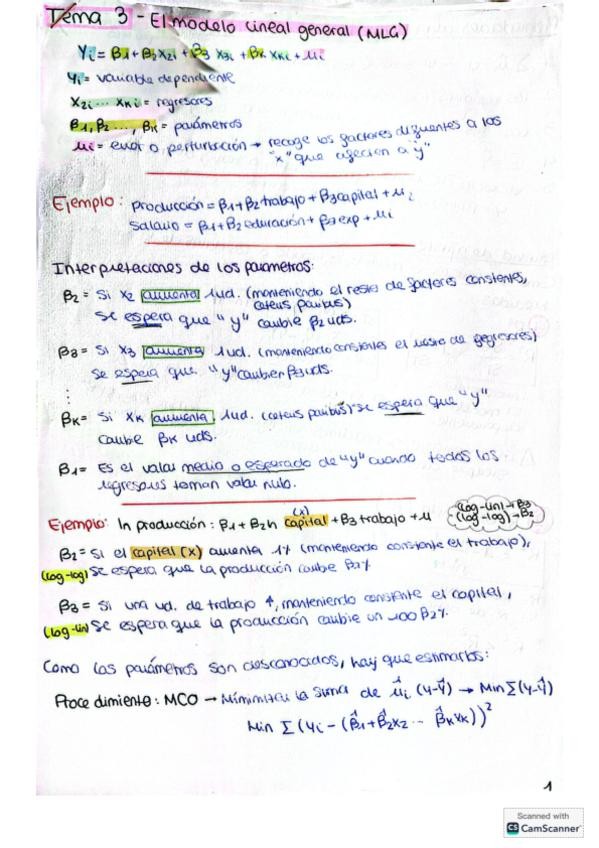 Tema 3 - El modelo lineal general (MLG)
Yi = β1 + β2 X2i + β3 X3i + βk Xki + μi
Yi = variable dependiente
X2i ... Xki = regresores
β1, β2 ..., βk = parámetros
μi = error o perturbación → recoge los factores diferentes a los
"x" que afectan a y"
Ejemplo: Producción = β1 + β2 trabajo + β3 capital + μi
Salario = β1 + β2 educación + β3 exp + μi
Interpretaciones de los parámetros:
β2 = Si X2 aumenta 1ud. (manteniendo el resto de factores constantes,
ceteris paribus)
se espera que "y" cambie β2 uds.
β3 = Si X3 aumenta 1ud. (manteniendo constantes el resto de regresores)
se espera que "y" cambien β3 uds.
⋮
βk = Si Xk aumenta 1ud. (ceteris paribus) se espera que "y"
cambie βk uds.
β1 = Es el valor medio o esperado de "y" cuando todos los
regresores toman valor nulo.
(log-lin) → β3
(log-log) → β2
(x)
Ejemplo: ln producción: β1 + β2 ln capital + β3 trabajo + μ
β2 = Si el capital (x) aumenta 1% (manteniendo constante el trabajo),
(log-log) se espera que la producción cambie β2%
β3 = Si una ud. de trabajo ↑, manteniendo constante el capital,
(log-lin) se espera que la producción cambie un 100 β2%.
Como los parámetros son desconocidos, hay que estimarlos:
Procedimiento: MCO → Minimizar la suma de μ̂i (y-ŷ) → Min Σ(y-ŷ)
Min Σ (yi - (β̂1 + β̂2 X2 ... β̂k Xk))²
1
Scanned with
CS CamScanner